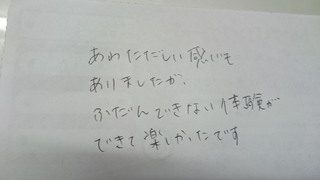 あわただしい感じも
ありましたが、
ふだんできない体験が
できて楽しかったです